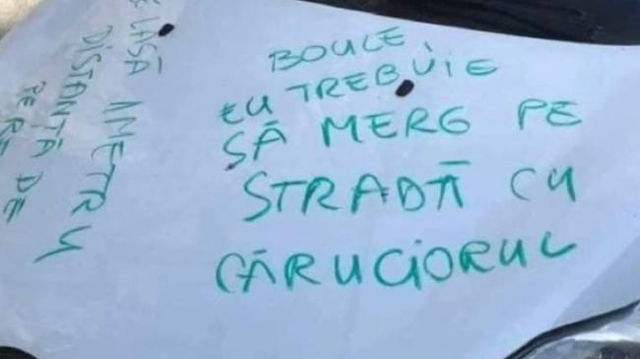 BOULE,
EU TREBUIE
SĂ MERG PE
STRADĂ CU
CĂRUCIORUL
LASĂ 1 METRU
DISTANȚĂ DE